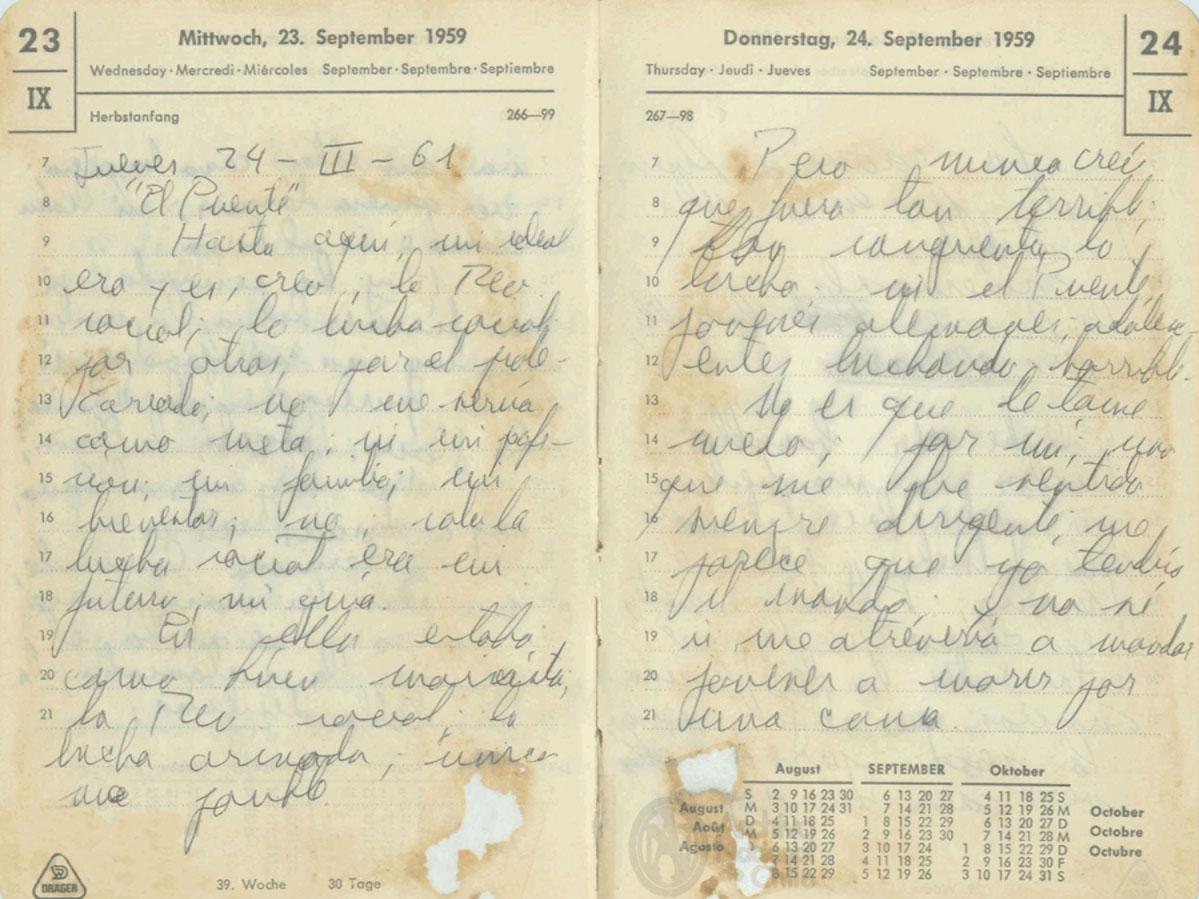 23
IX
Mittwoch, 23. September 1959
Wednesday · Mercredi · Miércoles September · Septembre · Septiembre
Herbstanfang 266—99
7 Jueves 24 – III – 61
8 "El Puente"
9 Hasta aquí, mi ideal
10 era y es, creo, la Rev
11 social; la lucha social
12 por otros, por el prole-
13 tariado; no me servía
14 como meta; ni mi profe-
15 sion; mi familia; mi
16 bienestar; no; solo la
17 lucha social era mi
18 futuro; mi guia.
19 En ella estaba;
20 como buen marxista,
21 la Rev social; la
lucha armada; única
posible.
DRÄGER
39. Woche 30 Tage
Donnerstag, 24. September 1959
Thursday · Jeudi · Jueves September · Septembre · Septiembre
24
IX
267—98
7 Pero nunca creí
8 que fuera tan terrible;
9 tan sangrienta la
10 lucha. en el Puente,
11 jovenes alemanes, adolesc
12 entes luchando horrible.
13 No es que le tome
14 miedo; por mi; sino
15 que me he sentido
16 siempre dirigente, me
17 parece que yo tendría
18 el mando; y no sé
19 si me atrevería a mandar
20 jovenes a morir por
21 una causa.
August SEPTEMBER Oktober
S 2 9 16 23 30 6 13 20 27 4 11 18 25 S
August M 3 10 17 24 31 7 14 21 28 5 12 19 26 M October
Août D 4 11 18 25 1 8 15 22 29 6 13 20 27 D Octobre
M 5 12 19 26 2 9 16 23 30 7 14 21 28 M
Agosto 6 13 20 27 3 10 17 24 1 8 15 22 29 D Octubre
7 14 21 28 4 11 18 25 2 9 16 23 30 F
8 15 22 29 5 12 19 26 3 10 17 24 31 S